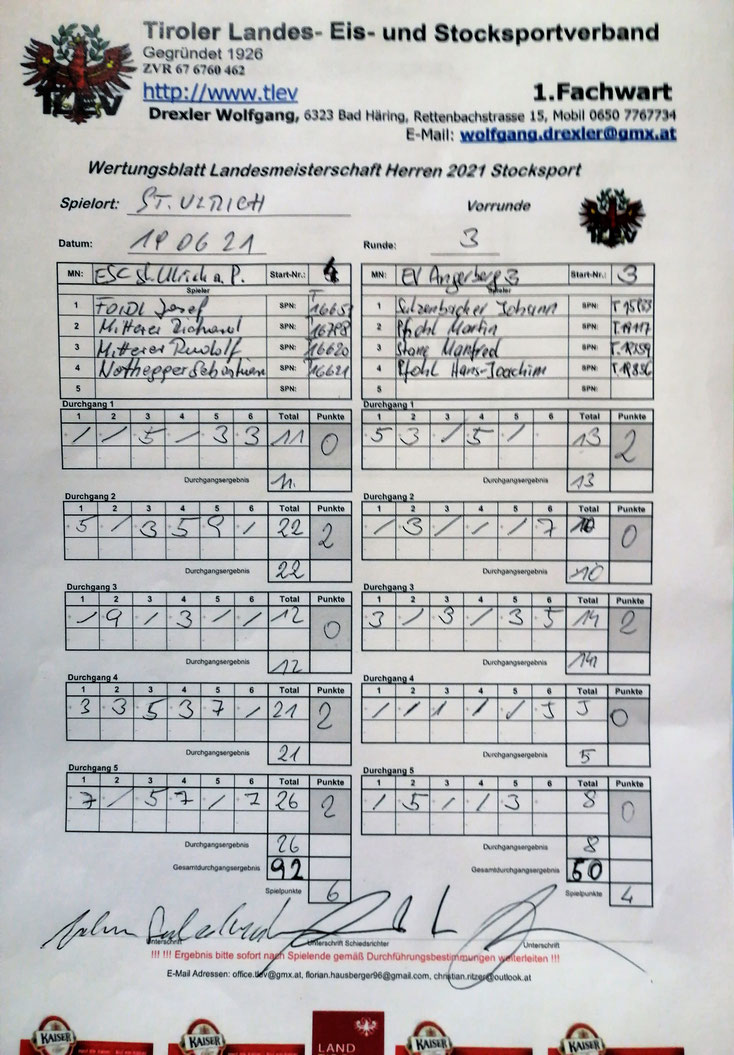 Tiroler Landes- Eis- und Stocksportverband
Gegründet 1926
ZVR 67 6760 462
TLEV
http://www.tlev 1.Fachwart
Drexler Wolfgang, 6323 Bad Häring, Rettenbachstrasse 15, Mobil 0650 7767734
E-Mail: wolfgang.drexler@gmx.at
Wertungsblatt Landesmeisterschaft Herren 2021 Stocksport
Spielort: ST. ULRICH Vorrunde
Datum: 19 06 21 Runde: 3
MN: ESC St. Ulrich a. P. Start-Nr.: 4 MN: EV Angerberg 3 Start-Nr.: 3
Spieler Spieler
1 FOIDL Josef SPN: 1 Sulzenbacher Johann SPN:
2 Mitterer SPN: 2 Pfohl Martin SPN:
3 Mitterer Rudolf SPN: 16620 3 Manfred SPN:
4 Nothegger Sebastian SPN: 16621 4 Pfohl Hans-Joachim SPN:
5 SPN: 5 SPN:
Durchgang 1 Durchgang 1
1 2 3 4 5 6 Total Punkte 1 2 3 4 5 6 Total Punkte
/ / 5 / 3 3 11 0 5 3 / 5 / 13 2
Durchgangsergebnis 11. Durchgangsergebnis 13
Durchgang 2 Durchgang 2
1 2 3 4 5 6 Total Punkte 1 2 3 4 5 6 Total Punkte
5 / 3 5 9 / 22 2 / 3 / / / 7 10 0
Durchgangsergebnis 22 Durchgangsergebnis 10
Durchgang 3 Durchgang 3
1 2 3 4 5 6 Total Punkte 1 2 3 4 5 6 Total Punkte
/ 9 / 3 / / 12 0 3 / 3 / 3 5 14 2
Durchgangsergebnis 12 Durchgangsergebnis 14
Durchgang 4 Durchgang 4
1 2 3 4 5 6 Total Punkte 1 2 3 4 5 6 Total Punkte
3 3 5 3 7 / 21 2 / / / / / 5 5 0
Durchgangsergebnis 21 Durchgangsergebnis 5
Durchgang 5 Durchgang 5
1 2 3 4 5 6 Total Punkte 1 2 3 4 5 6 Total Punkte
7 / 5 7 / 7 26 2 / 5 / / 3 8 0
Durchgangsergebnis 26 Durchgangsergebnis 8
Gesamtdurchgangsergebnis 92 Gesamtdurchgangsergebnis 50
Spielpunkte 6 Spielpunkte 4
Unterschrift Unterschrift Schiedsrichter Unterschrift
!!! !!! Ergebnis bitte sofort nach Spielende gemäß Durchführungsbestimmungen weiterleiten !!!
E-Mail Adressen: office.tlev@gmx.at, florian.hausberger96@gmail.com, christian.ritzer@outlook.at
KAISER KAISER LAND KAISER KAISER